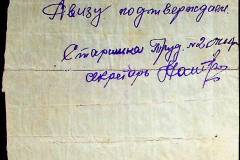 Авизу подтверждаем.
Старшина Труд. №2
секретарь